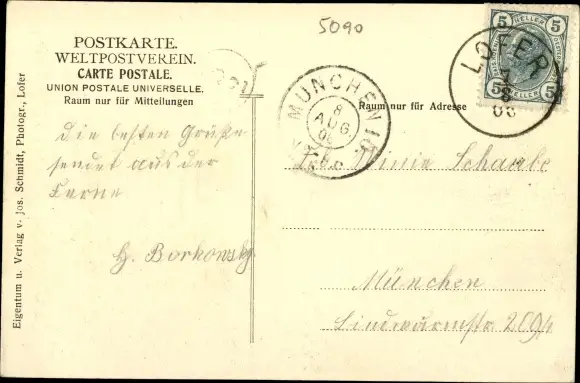 5090
POSTKARTE.
WELTPOSTVEREIN.
CARTE POSTALE.
UNION POSTALE UNIVERSELLE.
Raum nur für Mitteilungen
Die besten Grüße
sendet aus der
Ferne
H. Borkowsky
Eigentum u. Verlag v. Jos. Schmidt, Photogr., Lofer
MÜNCHEN
8
AUG
Raum nur für Adresse
5 HELLER 5
5 5
LOFER
8
08
Minnie Schaabe
München
Lindwurmstr.